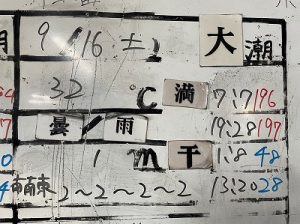 9/16 土 大潮
32 ℃ 満 7:7 196
曇/雨 19:28 197
1 m 干 1:8 48
南東 2~2~2~2 13:20 28